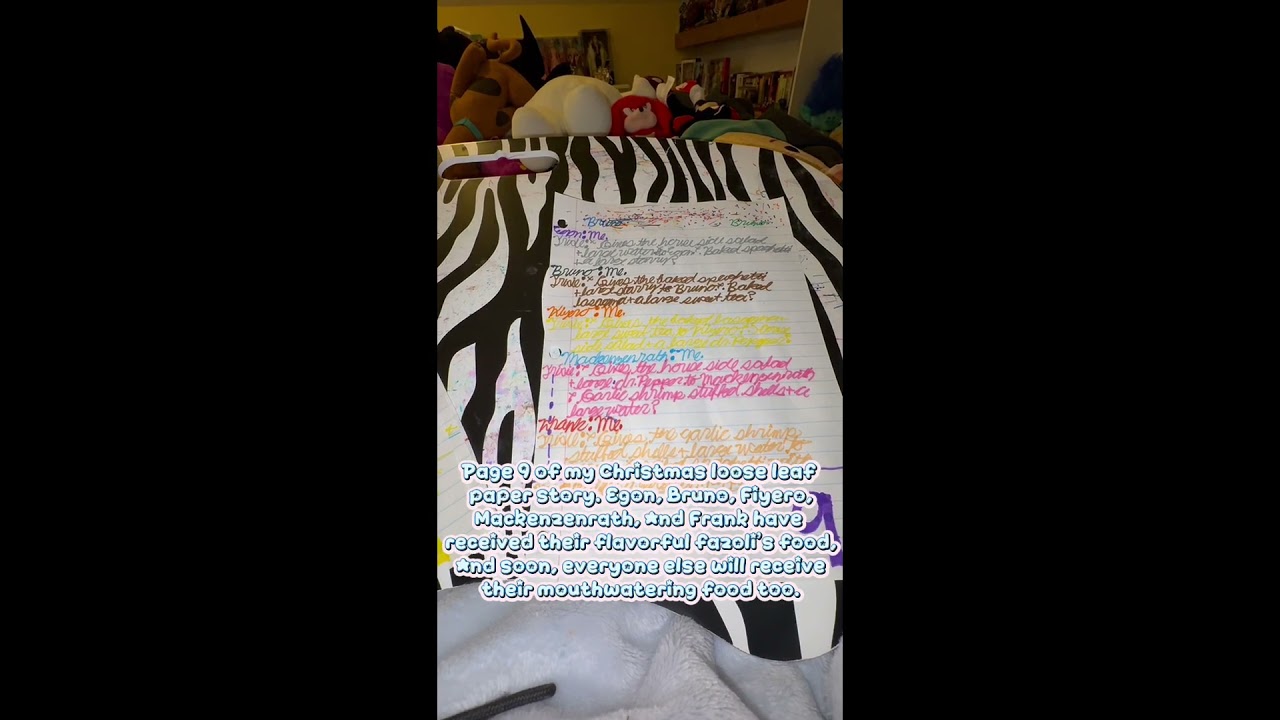 Egon: Me.
Trixie: * Gives the house side salad
+ large water to Egon* Baked spaghetti
+ a large
Bruno: Me.
Trixie: * Gives the baked spaghetti
+ large to Bruno* Baked
lasagna + a large sweet tea?
Fiyero: Me.
Trixie: * Gives the baked
large sweet tea to Fiyero* House
side salad + a large dr. Pepper?
Mackenzenrath: Me.
Trixie: * Gives the house side salad
+ large dr. Pepper to Mackenzenrath
* Garlic shrimp stuffed shells + a
large water?
Frank: Me.
Trixie: * Gives the garlic shrimp
stuffed shells + large water to
Page 9 of my Christmas loose leaf
paper story. Egon, Bruno, Fiyero,
Mackenzenrath, And Frank have
received their flavorful fazoli's food,
And soon, everyone else will receive
their mouthwatering food too.